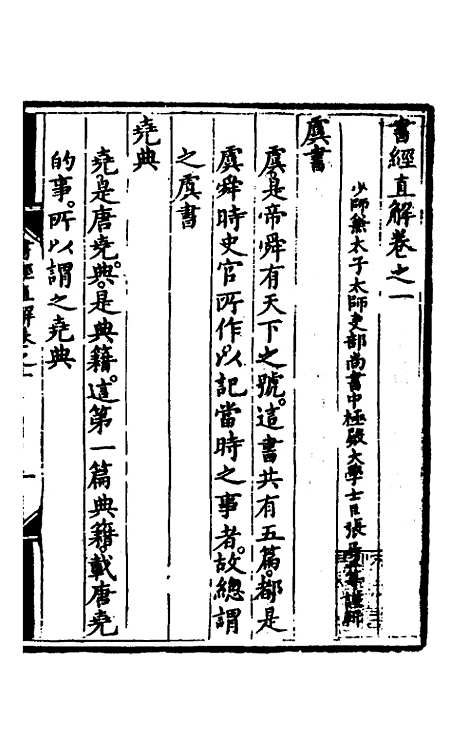 書經直解卷之一
少師兼太子太師吏部尚書中極殿大學士臣張居正等謹解
虞書
虞是帝舜有天下之號。這書共有五篇。都是
虞舜時史官所作。以記當時之事者。故總謂
之虞書
堯典
堯是唐堯。典。是典籍。這第一篇典籍。載唐堯
的事。所以謂之堯典
書經直解卷之一
一